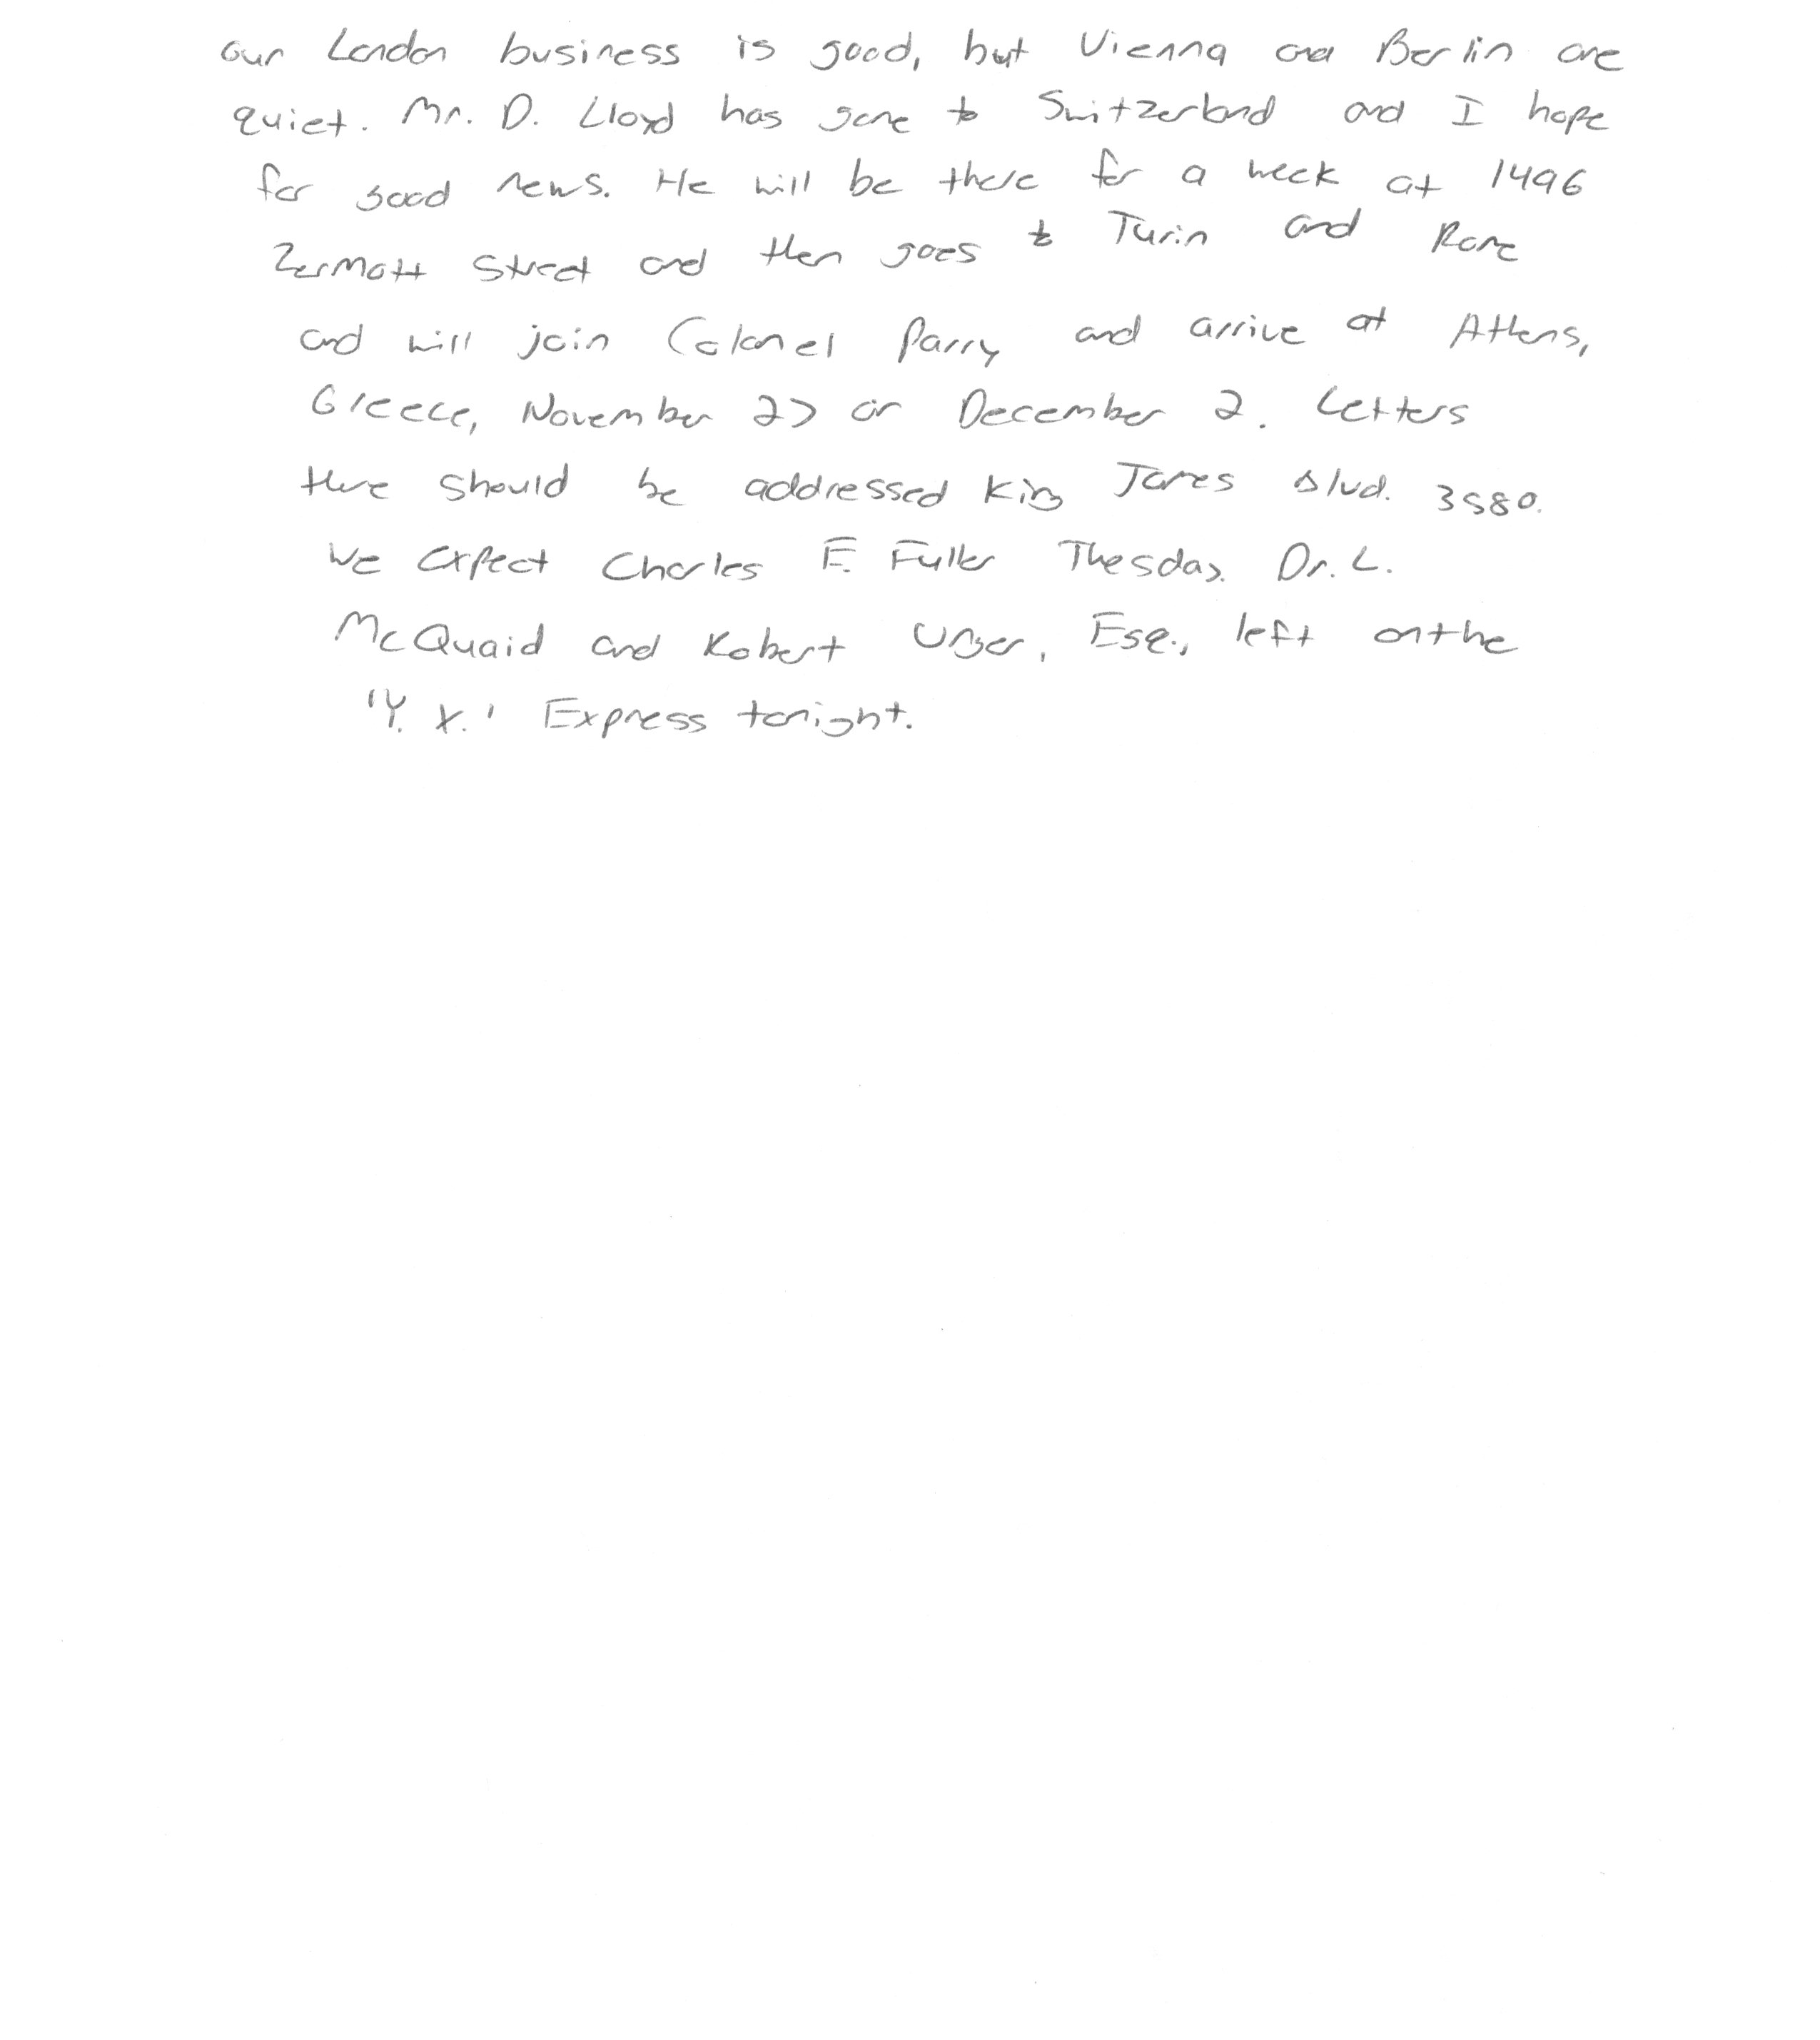 our London business is good, but Vienna and Berlin are
quiet. Mr. D. Lloyd has gone to Switzerland and I hope
for good news. He will be there for a week at 1496
Zermott Street and then goes to Turin and Rome
and will join Colonel Parry and arrive at Athens,
Greece, November 27 or December 2. Letters
there should be addressed King James Blvd. 3580.
We expect Charles E. Fuller Thesday. Dr. L.
McQuaid and Robert Unger, Esq., left on the
'Y. X.' Express tonight.